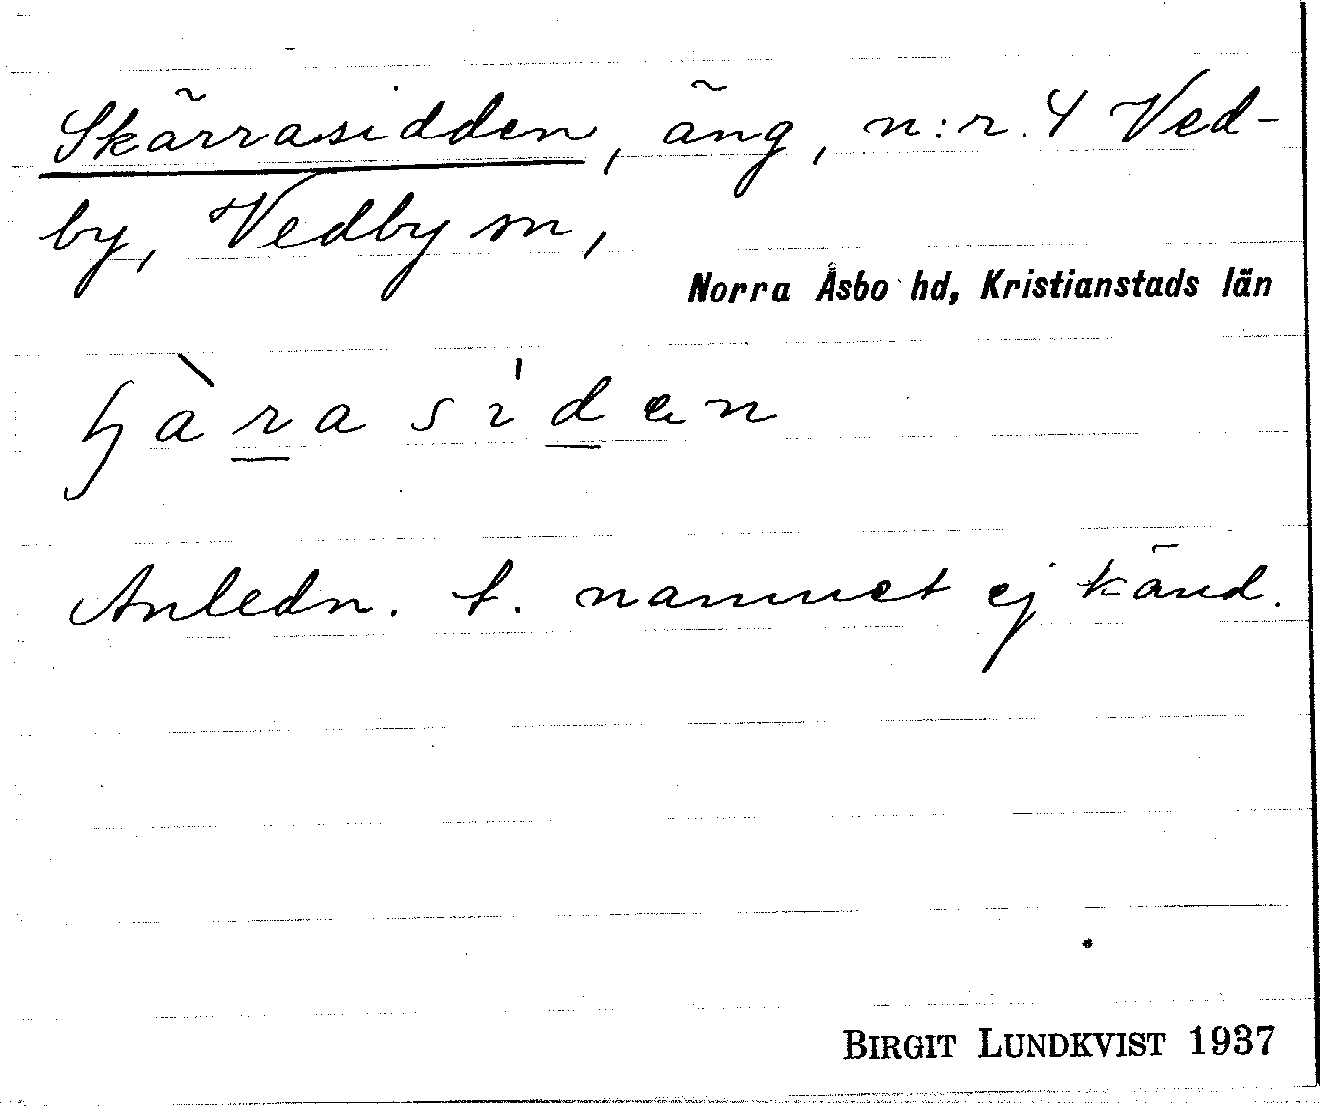 Skärrasidden, äng, n:r. 4 Ved-
by, Vedby sn,
Norra Åsbo hd, Kristianstads län
Anledn. t. namnet ej känd.
BIRGIT LUNDKVIST 1937